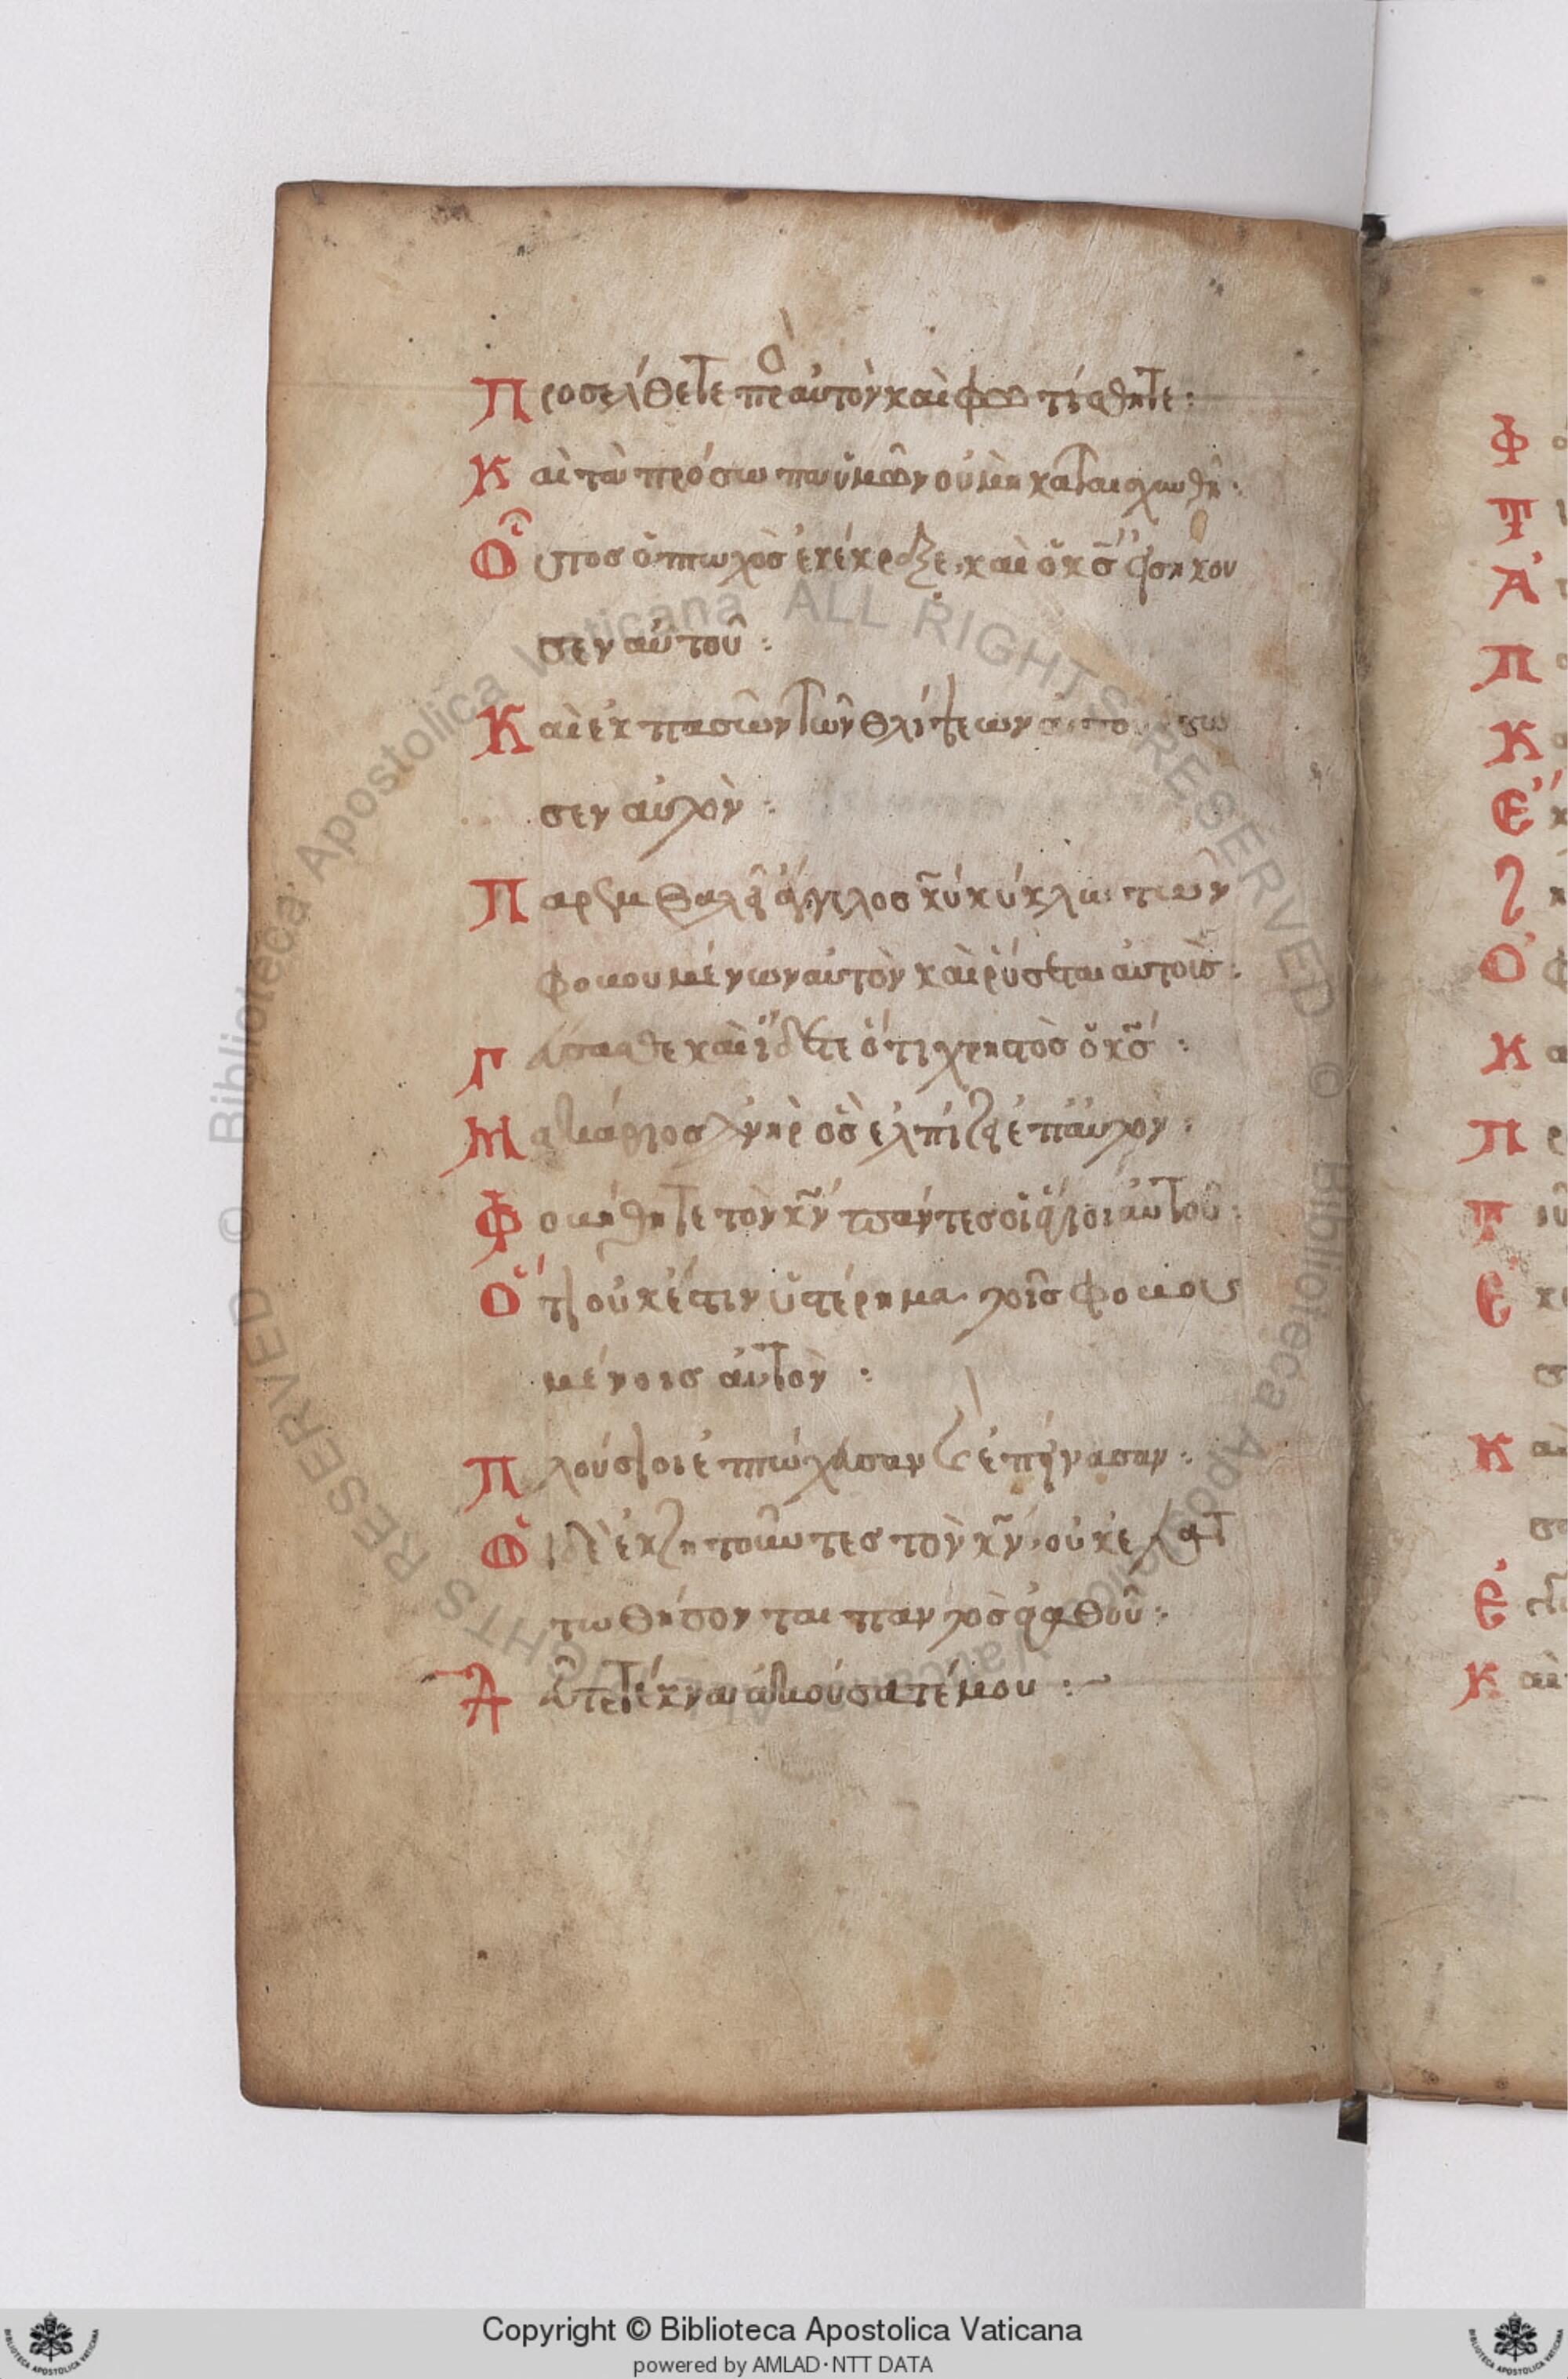 Προσέλθετε πρὸς αὐτὸν καὶ φωτίσθητε :
Καὶ τὰ πρόσωπα ὑμῶν οὐ μὴ καταισχυνθῆ :
Οὗτος ὁ πτωχὸς ἐκέκραξε, καὶ ὁ κς εἰσήκου
σεν αὐτοῦ :
Καὶ ἐκ πασῶν τῶν θλίψεων αὐτοῦ ἔσω
σεν αὐτὸν :
Παρεμβαλεῖ ἄγγελος κυ κύκλω τῶν
φοβουμένων αὐτὸν καὶ ῥύσεται αὐτοὺς :
Γεύσασθε καὶ ἴδετε ὅτι χρηστὸς ὁ κς :
Μακάριος ἀνὴρ ὃς ἐλπίζει ἐπ' αὐτὸν :
Φοβήθητε τὸν κν πάντες οἱ ἅγιοι αὐτοῦ :
Ὅτι οὐκ ἔστιν ὑστέρημα τοῖς φοβου
μένοις αὐτὸν :
Πλούσιοι ἐπτώχευσαν καὶ ἐπείνασαν :
Οἱ δὲ ἐκζητοῦντες τὸν κν, οὐκ ἐλατ
τωθήσονται παντὸς ἀγαθοῦ :
Δεῦτε τέκνα ἀκούσατέ μου :
Copyright © Biblioteca Apostolica Vaticana
powered by AMLAD·NTT DATA